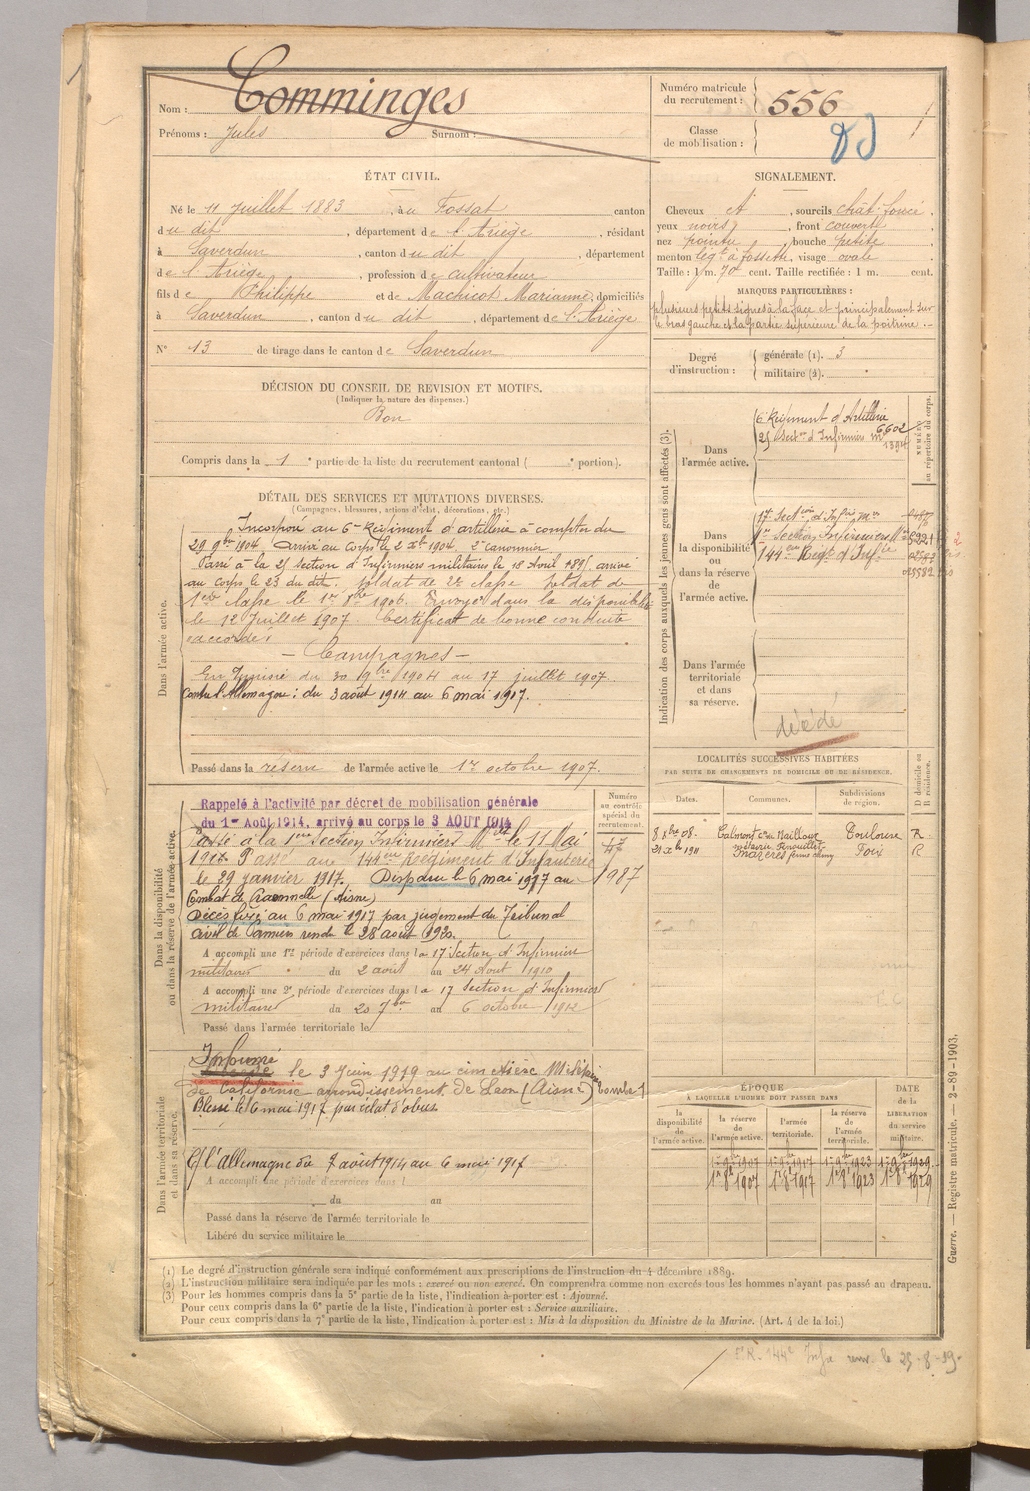 Nom : Comminges
Prénoms : Jules Surnom :
Numéro matricule du recrutement : 556
Classe de mobilisation :
ÉTAT CIVIL.
Né le 11 Juillet 1883, à u Fossat canton
du dit, département de l'Ariège, résidant
à Saverdun, canton du dit, département
de l'Ariège, profession de cultivateur
fils de Philippe et de Machicot Marianne, domiciliés
à Saverdun, canton du dit, département de l'Ariège
N° 13 de tirage dans le canton de Saverdun
SIGNALEMENT.
Cheveux d, sourcils chât. foncé.
yeux noirs, front couvert
nez pointu, bouche petite
menton lég.t à fossette, visage ovale
Taille : 1 m. 70 cent. Taille rectifiée : 1 m. cent.
MARQUES PARTICULIÈRES :
plusieurs petits signes à la face et principalement sur
le bras gauche et la partie supérieure de la poitrine.
Degré d'instruction : générale (1). 3
militaire (2).
DÉCISION DU CONSEIL DE REVISION ET MOTIFS.
(Indiquer la nature des dispenses.)
Bon
Compris dans la 1e partie de la liste du recrutement cantonal ( e portion).
Indication des corps auxquels les jeunes gens sont affectés (3).
NUMÉRO au répertoire du corps.
Dans l'armée active.
6e Régiment d'Artillerie
6602
25 Secton d'Infirmiers m
1394
Dans la disponibilité ou dans la réserve de l'armée active.
17e Section d'Infirs Mres
1re Section Infirmiers Mres
144eme Regt d'Infie
Dans l'armée territoriale et dans sa réserve.
décédé
DÉTAIL DES SERVICES ET MUTATIONS DIVERSES.
(Campagnes, blessures, actions d'éclat, décorations, etc.)
Dans l'armée active.
Incorporé au 6e Régiment d'artillerie à compter du
29 9bre 1904. Arrivé au corps le 2 Xbre 1904. 2e canonnier
Passé à la 25 Section d'Infirmiers militaires le 18 Avril 1905, arrivé
au corps le 23 du dit. Soldat de 2e classe. Soldat de
1ere classe le 1er 8bre 1906. Envoyé dans la disponibilité
le 12 Juillet 1907. Certificat de bonne conduite
accordé.
- Campagnes -
En Tunisie du 30 9bre 1904 au 17 juillet 1907.
Contre l'Allemagne : du 3 août 1914 au 6 mai 1917.
Passé dans la réserve de l'armée active le 1er octobre 1907.
Dans la disponibilité ou dans la réserve de l'armée active.
Numéro au contrôle spécial du recrutement.
Rappelé à l'activité par décret de mobilisation générale
du 1er Août 1914, arrivé au corps le 3 AOUT 1914
Passé à la 1ere Section Infirmiers Mres le 11 Mai
Passé au 144eme Régiment d'Infanterie
le 29 janvier 1917. Disparu le 6 mai 1917 au
987
Combat de Craonnelle (Aisne)
Décès fixé au 6 mai 1917 par jugement du Tribunal
civil de Pamiers rendu le 28 août 1920.
A accompli une 1re période d'exercices dans la 17 Section d'Infirmiers
militaires du 2 août au 24 Août 1910
A accompli une 2e période d'exercices dans la 17 Section d'Infirmiers
militaires du 20 7bre au 6 octobre 1912
Passé dans l'armée territoriale le
LOCALITÉS SUCCESSIVES HABITÉES
PAR SUITE DE CHANGEMENTS DE DOMICILE OU DE RÉSIDENCE.
D domicile ou R résidence.
Dates. Communes. Subdivisions de région.
8 Xbre 08. Calmont con Nailloux Toulouse R.
21 Xbre 1911 Mazères Foix R
Dans l'armée territoriale et dans sa réserve.
Inhumé
le 3 Juin 1919 au cimetière Militaire
de Californie arrondissement de Laon (Aisne) tombe 1
Blessé le 6 mai 1917 par éclat d'obus
C/ l'Allemagne du 7 août 1914 au 6 mai 1917
A accompli une période d'exercices dans l
du au
Passé dans la réserve de l'armée territoriale le
Libéré du service militaire le
ÉPOQUE
À LAQUELLE L'HOMME DOIT PASSER DANS
DATE de la LIBÉRATION du service militaire.
la disponibilité de l'armée active. la réserve de l'armée active. l'armée territoriale. la réserve de l'armée territoriale.
1er 9bre 1907 1er 9bre 1917 1er 9bre 1923 1er 9bre 1929.
1er 8bre 1907 1er 8bre 1917 1er 8bre 1923 1er 8bre 1929
(1) Le degré d'instruction générale sera indiqué conformément aux prescriptions de l'instruction du 4 décembre 1889.
(2) L'instruction militaire sera indiquée par les mots : exercé ou non exercé. On comprendra comme non exercés tous les hommes n'ayant pas passé au drapeau.
(3) Pour les hommes compris dans la 5e partie de la liste, l'indication à porter est : Ajourné.
Pour ceux compris dans la 6e partie de la liste, l'indication à porter est : Service auxiliaire.
Pour ceux compris dans la 7e partie de la liste, l'indication à porter est : Mis à la disposition du Ministre de la Marine. (Art. 4 de la loi.)
Guerre. — Registre matricule. — 2-89-1903.
144e Infie le 25-8-19-